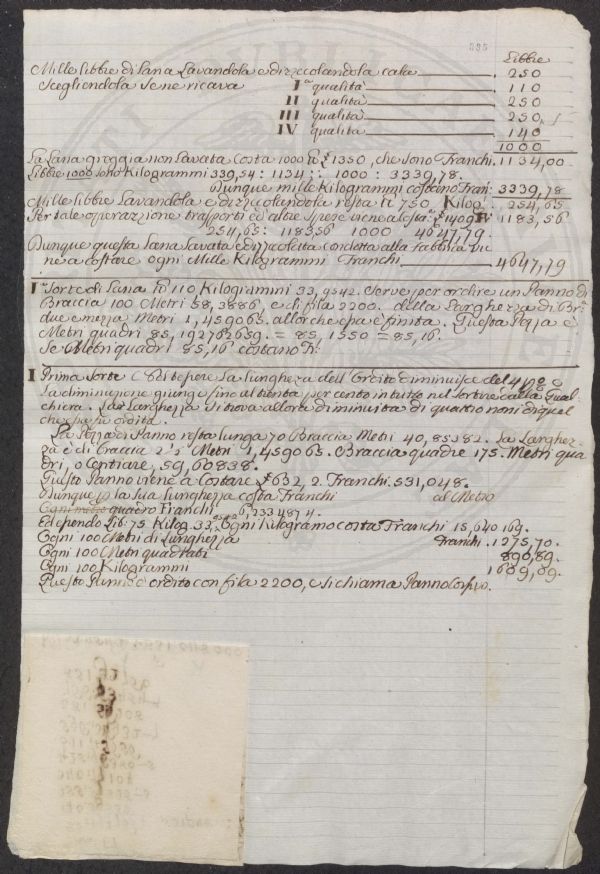 335
Libbre
Mille libbre di Lana Lavandola e dizzolandola cala 250
Scegliendola se ne ricava Iª qualità 110
II qualità 250
III qualità 250
IV qualità 140
1000
La Lana greggia non Lavata Costa 1000 £ 1350, che sono Franchi. 1134,00.
Libbre 1000 sono Kilogrammi 339,54 : 1134 :: 1000 : 3339,78.
Dunque mille Kilogrammi costano Fran: 3339,78
Mille libbre Lavandola e dizzolandola resta ti 750 Kilog. 254,65
Per tale operazione trasporti ed altre spese viene a costa £ 1409 1183,56
254,65 : 1183,56 1000 4647,79.
Dunque questa Lana Lavata e condotta alla fabbrica vie
ne a costare ogni Mille Kilogrammi Franchi 4647,79
Iª Sorte di Lana 110, Kilogrammi 33,9542. Serve per ordire un Panno di
Braccia 100 Metri 58,3886, e di fila 2200. della Larghezza di Br:
due e mezza Metri 1,459065. allorche è finita. Questa Pezza è
Metri quadri 85,192762659. = 85,1550 = 85,16.
Se Metri quadri 85,16 costano Fr:
I Prima Sorte La Lunghezza dell'Ordito diminuisce del
La diminuzione giunge fino al trenta per cento in tutto nel sortire dalla Gual
chiera. La Larghezza si trova allora diminuita di quattro noni di quel
che fu ordita.
La Pezza di Panno resta lunga 70 Braccia Metri 40,85382. La Larghez
za è di Braccia 2½ Metri 1,459065. Braccia quadre 175. Metri qua
dri, o Centiare, 59,60838.
Questo Panno viene a Costare £ 632,2 Franchi. 531,048.
Dunque la sua lunghezza costa Franchi al Metro
Ogni quadro Franchi 6,2334874.
Ed essendo Lib: 75 Kilog. 33, Ogni Kilogramo costa Franchi 15,640169.
Ogni 100 Metri di Lunghezza Franchi. 1275,70.
Ogni 100 Metri quadrati 890,89.
Ogni 100 Kilogrammi 1609,09.
Questo Panno è ordito con fila 2200, e si chiama Panno Corsivo.